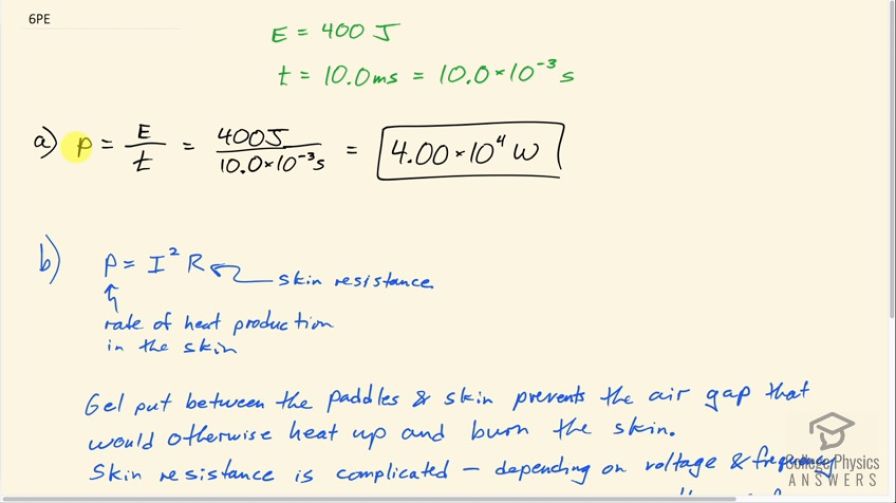 6PE
E = 400 J
t = 10.0ms = 10.0×10⁻³ s
a) P = E/t = 400J/10.0×10⁻³s = 4.00×10⁴ W
b) P = I² R skin resistance
rate of heat production
in the skin
Gel put between the paddles & skin prevents the air gap that
would otherwise heat up and burn the skin.
Skin resistance is complicated – depending on voltage & frequency
College Physics
ANSWERS